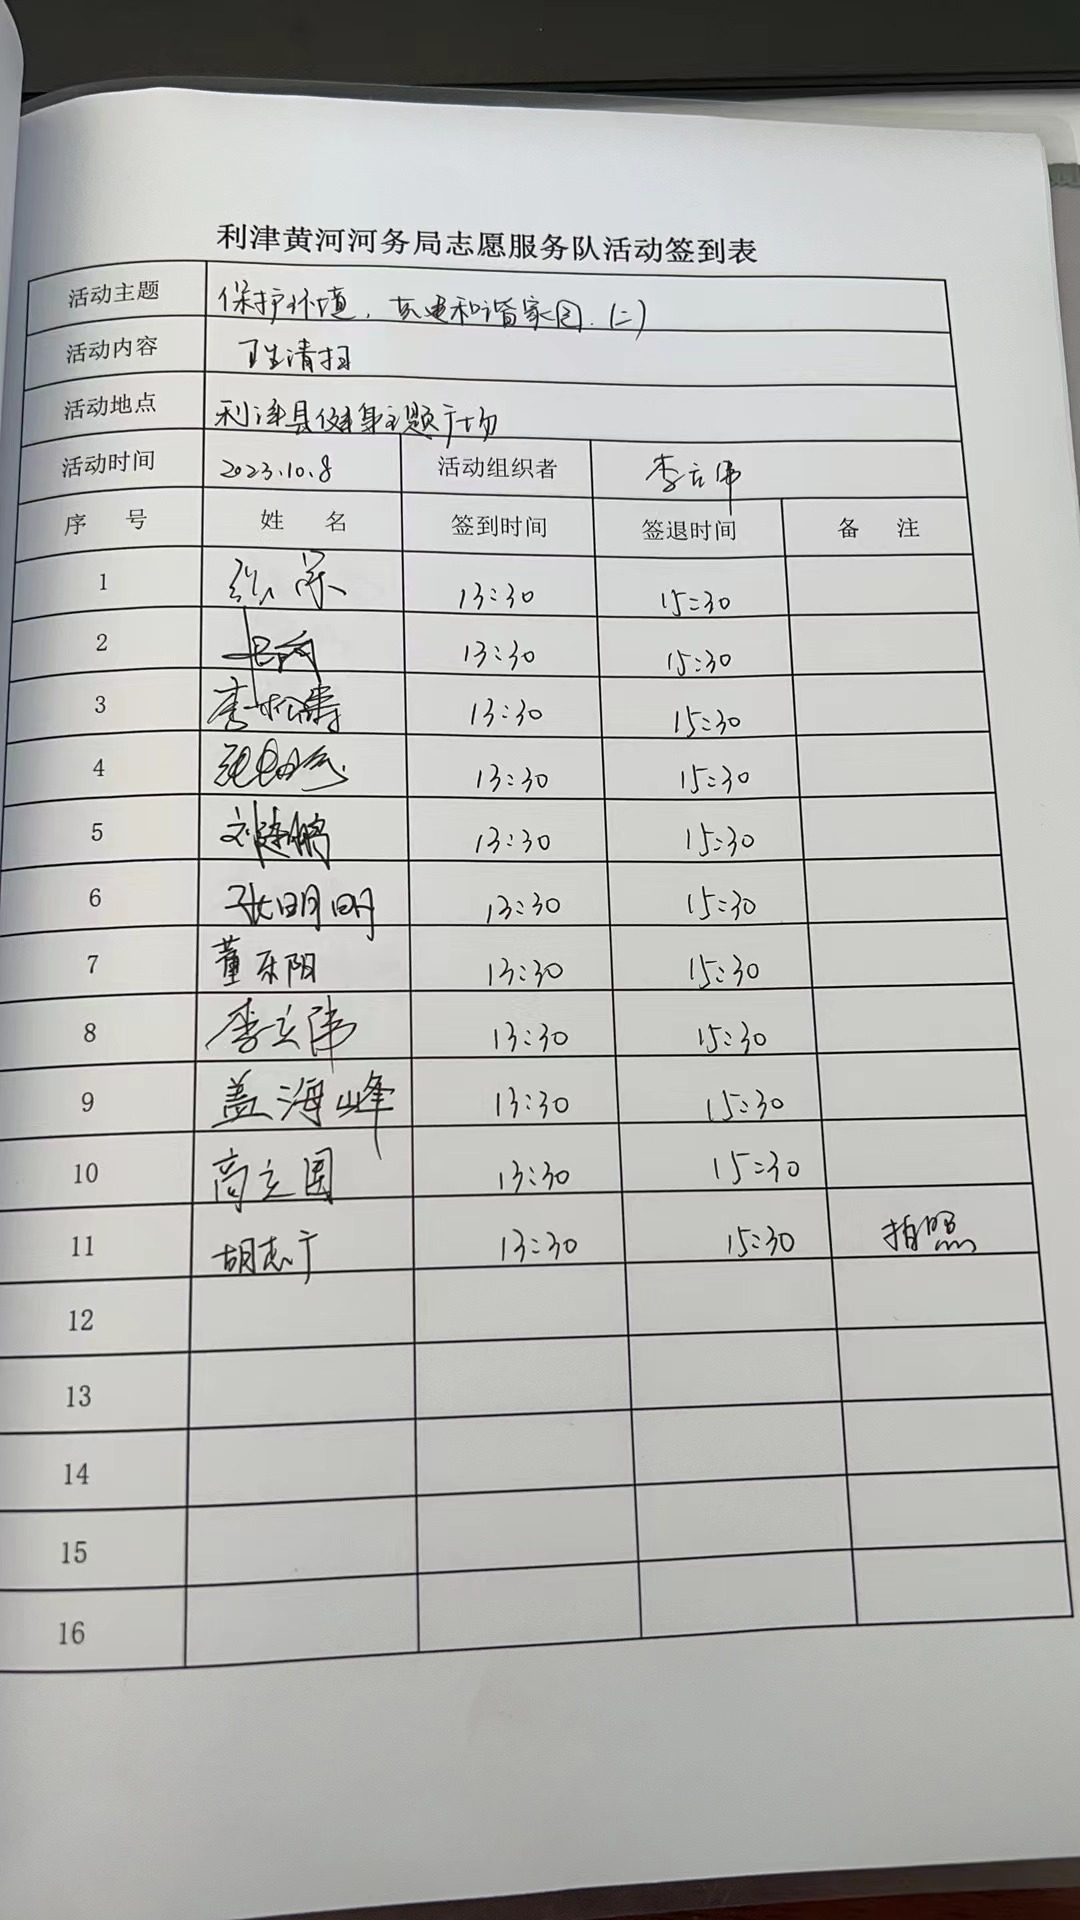 利津黄河河务局志愿服务队活动签到表
活动主题 保护环境，共建和谐家园（二）
活动内容 卫生清扫
活动地点 利津县健身主题广场
活动时间 2023.10.8 活动组织者 李立伟
序号 姓名 签到时间 签退时间 备注
1 13:30 15:30
2 13:30 15:30
3 李松涛 13:30 15:30
4 13:30 15:30
5 刘建鹏 13:30 15:30
6 张明明 13:30 15:30
7 董东阳 13:30 15:30
8 李立伟 13:30 15:30
9 盖海峰 13:30 15:30
10 高立国 13:30 15:30
11 胡志广 13:30 15:30 拍照
12
13
14
15
16